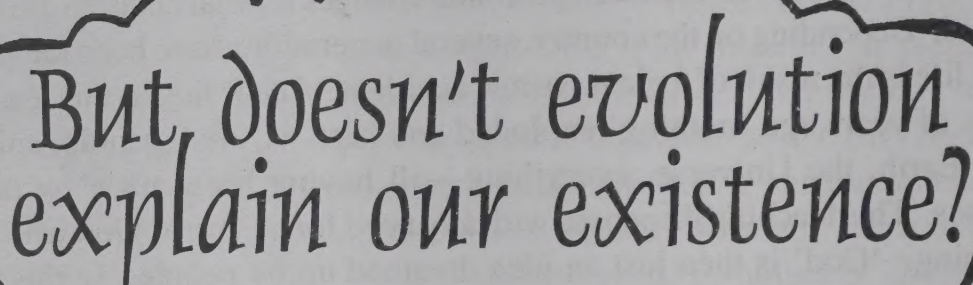 But doesn't evolution
explain our existence?